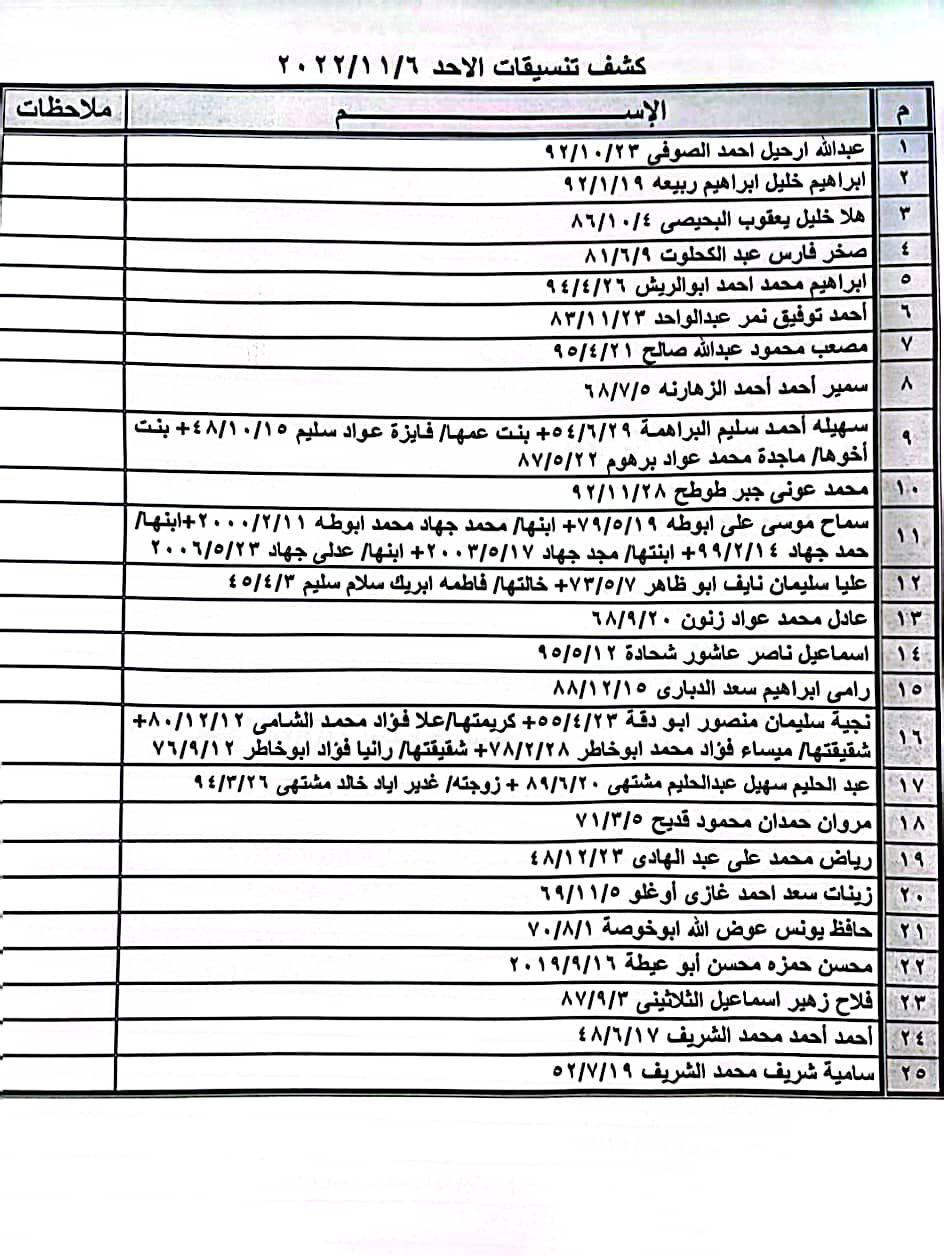 كشف تنسيقات الاحد ٢٠٢٢/١١/٦
م الإســــــــــــــم ملاحظات
١ عبدالله ارحيل احمد الصوفى ٩٢/١٠/٢٣
٢ ابراهيم خليل ابراهيم ربيعه ٩٢/١/١٩
٣ هلا خليل يعقوب البحيصى ٨٦/١٠/٤
٤ صخر فارس عبد الكحلوت ٨١/٦/٩
٥ ابراهيم محمد احمد ابوالريش ٩٤/٤/٢٦
٦ أحمد توفيق نمر عبدالواحد ٨٣/١١/٢٣
٧ مصعب محمود عبدالله صالح ٩٥/٤/٢١
٨ سمير أحمد أحمد الزهارنه ٦٨/٧/٥
٩ سهيله أحمد سليم البراهمة ٥٤/٦/٢٩+ بنت عمها/ فايزة عواد سليم ٤٨/١٠/١٥+ بنت
أخوها/ ماجدة محمد عواد برهوم ٨٧/٥/٢٢
١٠ محمد عونى جبر طوطح ٩٢/١١/٢٨
١١ سماح موسى على ابوطه ٧٩/٥/١٩+ ابنها/ محمد جهاد محمد ابوطه ٢٠٠٠/٢/١١+ابنها/
حمد جهاد ٩٩/٢/١٤+ ابنتها/ مجد جهاد ٢٠٠٣/٥/١٧+ ابنها/ عدلى جهاد ٢٠٠٦/٥/٢٣
١٢ عليا سليمان نايف ابو ظاهر ٧٣/٥/٧+ خالتها/ فاطمه ابريك سلام سليم ٤٥/٤/٣
١٣ عادل محمد عواد زنون ٦٨/٩/٢٠
١٤ اسماعيل ناصر عاشور شحادة ٩٥/٥/١٢
١٥ رامى ابراهيم سعد الدبارى ٨٨/١٢/١٥
١٦ نجية سليمان منصور ابو دقة ٥٥/٤/٢٣+ كريمتها/علا فؤاد محمد الشامى ٨٠/١٢/١٢+
شقيقتها/ ميساء فؤاد محمد ابوخاطر ٧٨/٢/٢٨+ شقيقتها/ رانيا فؤاد ابوخاطر ٧٦/٩/١٢
١٧ عبد الحليم سهيل عبدالحليم مشتهى ٨٩/٦/٢٠ + زوجته/ غدير اياد خالد مشتهى ٩٤/٣/٢٦
١٨ مروان حمدان محمود قديح ٧١/٣/٥
١٩ رياض محمد على عبد الهادى ٤٨/١٢/٢٣
٢٠ زينات سعد احمد غازى أوغلو ٦٩/١١/٥
٢١ حافظ يونس عوض الله ابوخوصة ٧٠/٨/١
٢٢ محسن حمزه محسن أبو عيطة ٢٠١٩/٩/١٦
٢٣ فلاح زهير اسماعيل الثلاثينى ٨٧/٩/٣
٢٤ أحمد أحمد محمد الشريف ٤٨/٦/١٧
٢٥ سامية شريف محمد الشريف ٥٢/٧/١٩